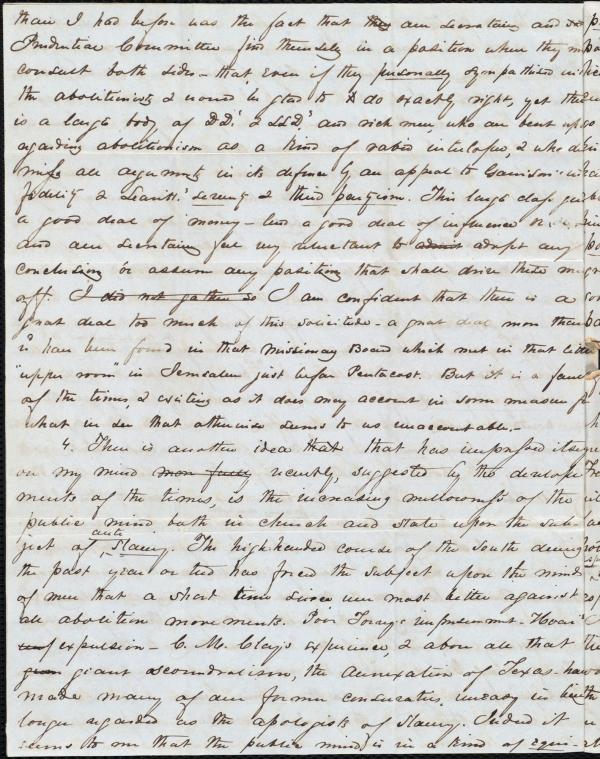 than I had before was the fact that our Secretaries and
Prudential Committee find themselves in a position where they m
consult both sides - that, even if they personally sympathized wi
the abolitionists & would be glad to do exactly right, yet the
is a large body of DD.s & LLDs and rich men, who are bent up
regarding abolitionism as a kind of rabid interloper, & who dis
miss all arguments in its defense by an appeal to Garrison's in
fidelity & Leavitt's severity & third partyism. This large class
a good deal of money - has a good deal of influence
and our Secretaries feel very reluctant to admit adopt any
conclusion or assume any position that shall drive these m
off. I did not gather so I am confident that there is a
great deal too much of this solicitude - a great deal more than
have been found in that missionary Board which met in that little
"upper room" in Jerusalem just before Pentecost. But it is a fau
of the times, & existing as it does may account in some measure f
what in them otherwise seems to us unaccountable. -
4. There is another idea that that has impressed itse
on my mind more fully recently, suggested by the develope
ments of the times, is the increasing mellowness of the
public mind both in church and state upon the sub
ject of anti slavery. The high-handed course of the South during
the past year or two has forced the subject upon the mind
of men that a short time since were most bitter against
all abolition movements. Poor Torrey's imprisonment - Hoar's
expulsion - C. M. Clay's experience, & above all that
giant scoundralism, the Annexation of Texas - have
made many of our former conservatives uneasy in being
longer regarded as the apologists of slavery. Indeed it
seems to me that the public mind is in a kind of equi-